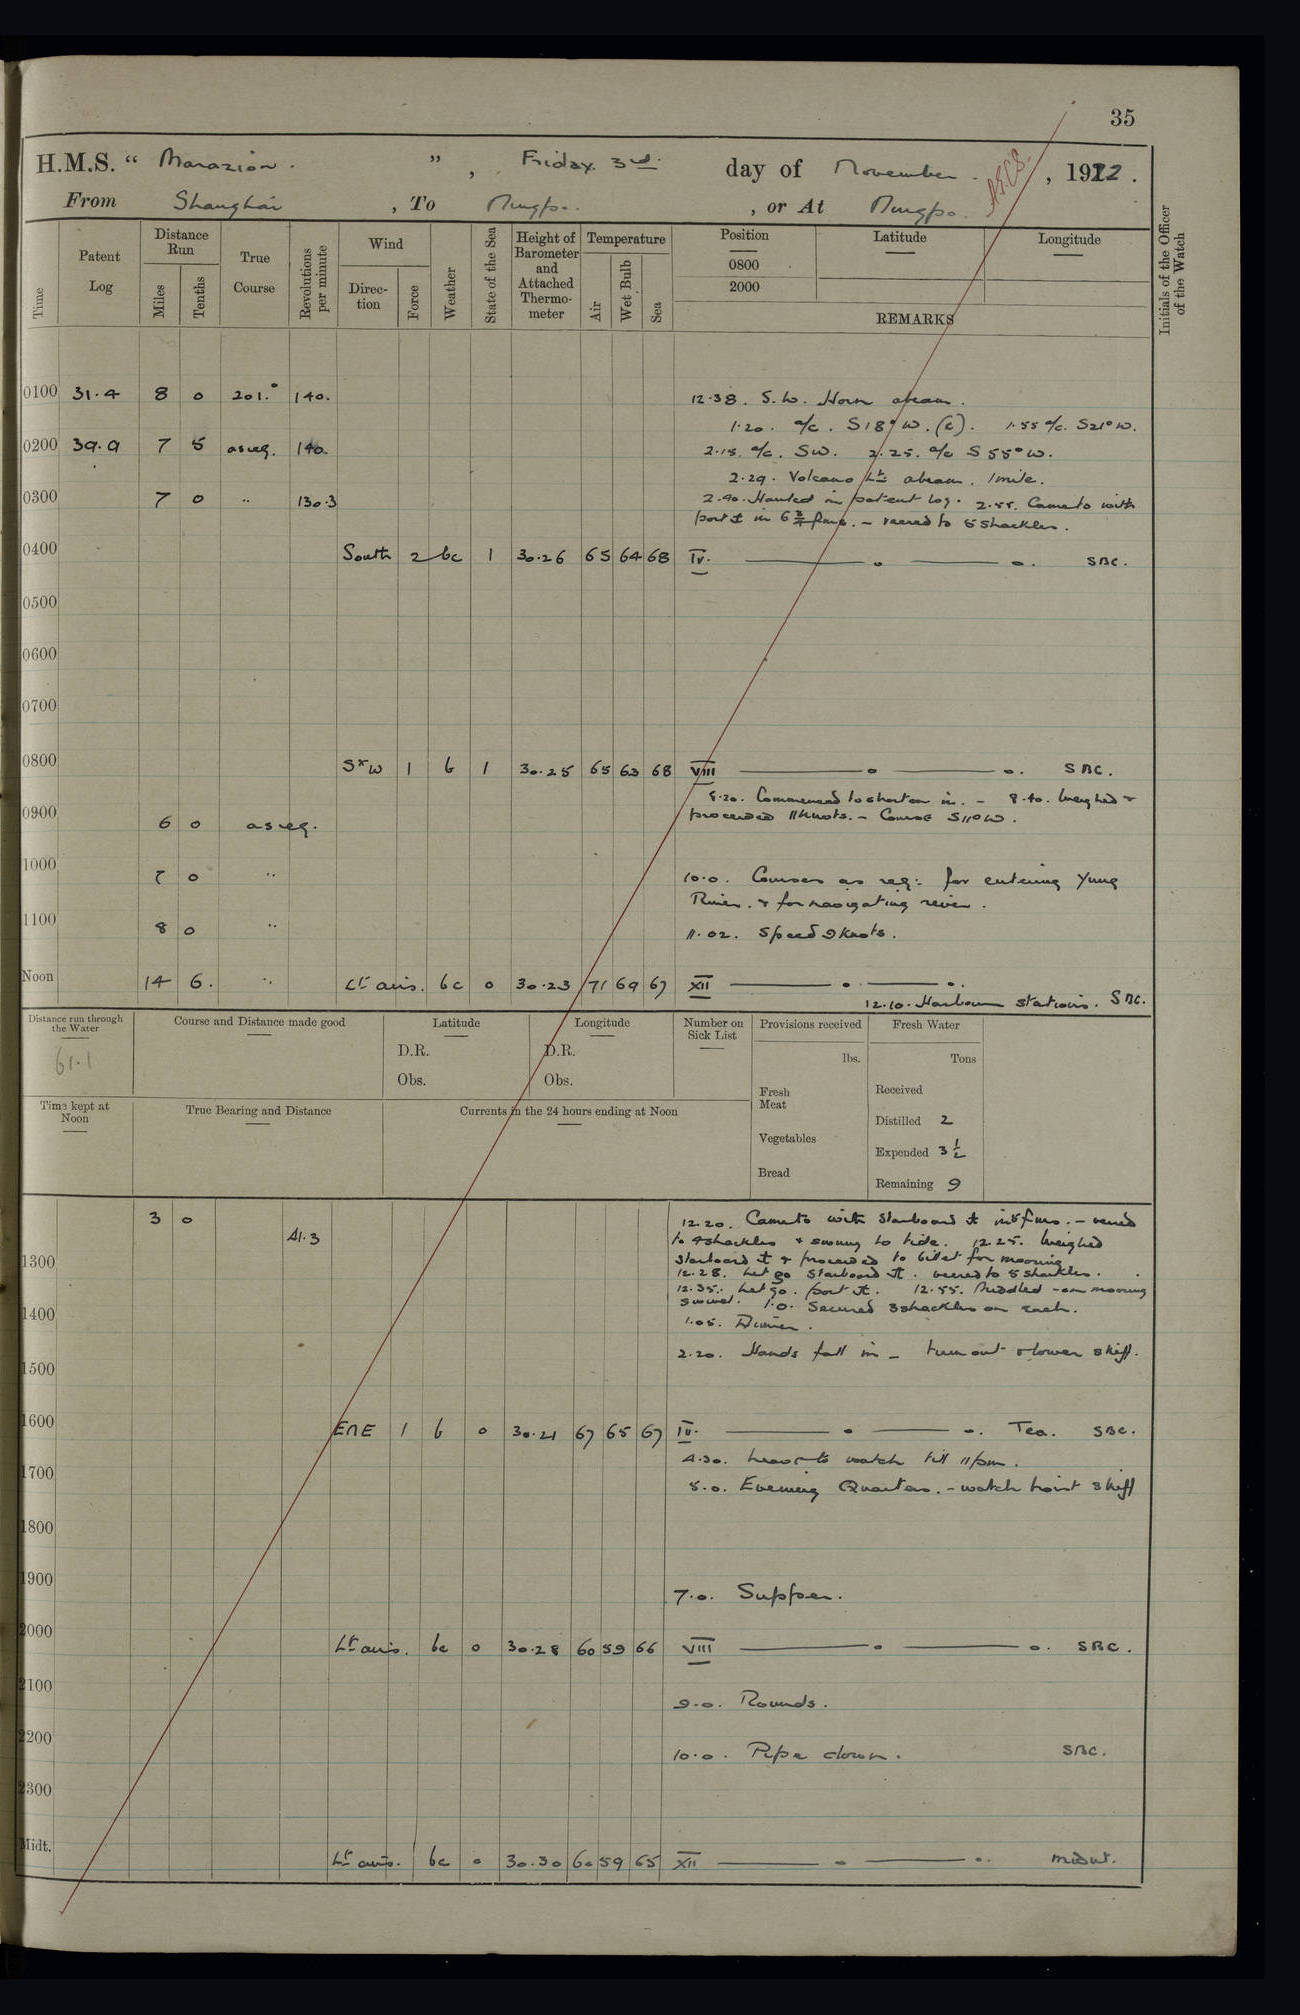 35
H.M.S. “ Marazion. ” , Friday. 3rd. day of November. , 1922.
From Shanghai , To Ningpo. , or At Ningpo.
Time
Patent Log
Distance Run
Miles
Tenths
True Course
Revolutions per minute
Wind
Direction
Force
Weather
State of the Sea
Height of Barometer and Attached Thermometer
Temperature
Air
Wet Bulb
Sea
Position
0800
2000
Latitude
Longitude
REMARKS
Initials of the Officer of the Watch
0100 31.4 8 0 201.° 140. 12.38. S.W. Horn abeam.
1.20. a/c. S18°W. (c). 1.55 a/c. S21°W.
0200 39.9 7 5 as req. 140. 2.15. a/c. SW. 2.25. a/c S55°W.
2.29. Volcano Lt abeam. 1 mile.
0300 7 0 " 130.3 2.40. Hauled in patent log. 2.55. Came to with
port ⚓ in 6 3/4 fms. - veered to 5 shackles.
0400 South 2 bc 1 30.26 65 64 68 IV. SBC.
0500
0600
0700
0800 SxW 1 b 1 30.25 65 63 68 VIII SBC.
8.20. Commenced to shorten in. - 8.40. Weighed &
0900 6 0 as req. proceeded 11 knots. - Course S11°W.
1000 7 0 " 10.0. Courses as req: for entering Yung
River. & for navigating river.
1100 8 0 " 11.02. Speed 9 knots.
Noon 14 6. " Lt airs. bc 0 30.23 71 69 67 XII
12.10. Harbour stations. SBC.
Distance run through the Water
61.1
Course and Distance made good
Latitude
D.R.
Obs.
Longitude
D.R.
Obs.
Number on Sick List
Provisions received
lbs.
Fresh Meat
Vegetables
Bread
Fresh Water
Tons
Received
Distilled 2
Expended 3 1/2
Remaining 9
Time kept at Noon
True Bearing and Distance
Currents in the 24 hours ending at Noon
3 0 41.3 12.20. Came to with starboard ⚓ in 5 fms. - veered
to 4 shackles & swung to tide. 12.25. Weighed
1300 starboard ⚓ & proceeded to billet for mooring
12.28. Let go starboard ⚓. veered to 5 shackles.
12.35. Let go. port ⚓. 12.55. Middled - on mooring
1400 swivel. 1.0. Secured 3 shackles on each.
1.05. Dinner.
2.20. Hands fall in - turn out & lower skiff.
1500
1600 ENE 1 b 0 30.21 67 65 67 IV. Tea. SBC.
4.30. Leave to watch till 11 pm.
1700 5.0. Evening Quarters. - watch hoist skiff
1800
1900 7.0. Supper.
2000 Lt airs. bc 0 30.28 60 59 66 VIII SBC.
2100 9.0. Rounds.
2200 10.0. Pipe down. SBC.
2300
Midt. Lt airs. bc 0 30.30 60 59 65 XII Midnt.